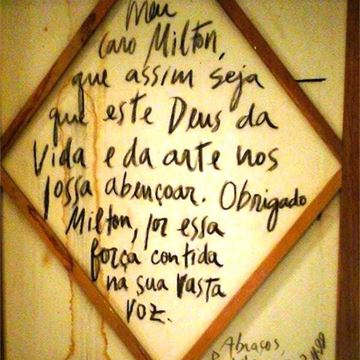 Meu
caro Milton,
que assim seja
que este Deus da
Vida e da arte nos
possa abençoar. Obrigado
Milton, por essa
força contida
na sua vasta
voz.
Abraços